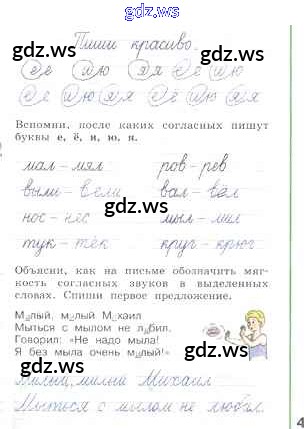 gdz.ws
Пиши красиво.
gdz.ws
е е и ю я я е е и ю
е и ю я я е е и ю я я
gdz.ws
Вспомни, после каких согласных пишут
буквы е, ё, и, ю, я.
мал – мял ров – рев
gdz.ws
выли – вели вал – вёл
нос – нёс мыл – мил
gdz.ws
тук – тёк круг – крюг
gdz.ws
Объясни, как на письме обозначить мяг-
кость согласных звуков в выделенных
словах. Спиши первое предложение.
Милый, милый Михаил
Мыться с мылом не любил.
Говорил: «Не надо мыла!
Я без мыла очень милый!»
gdz.ws
Милый, милый Михаил
Мыться с мылом не любил.
gdz.ws
4